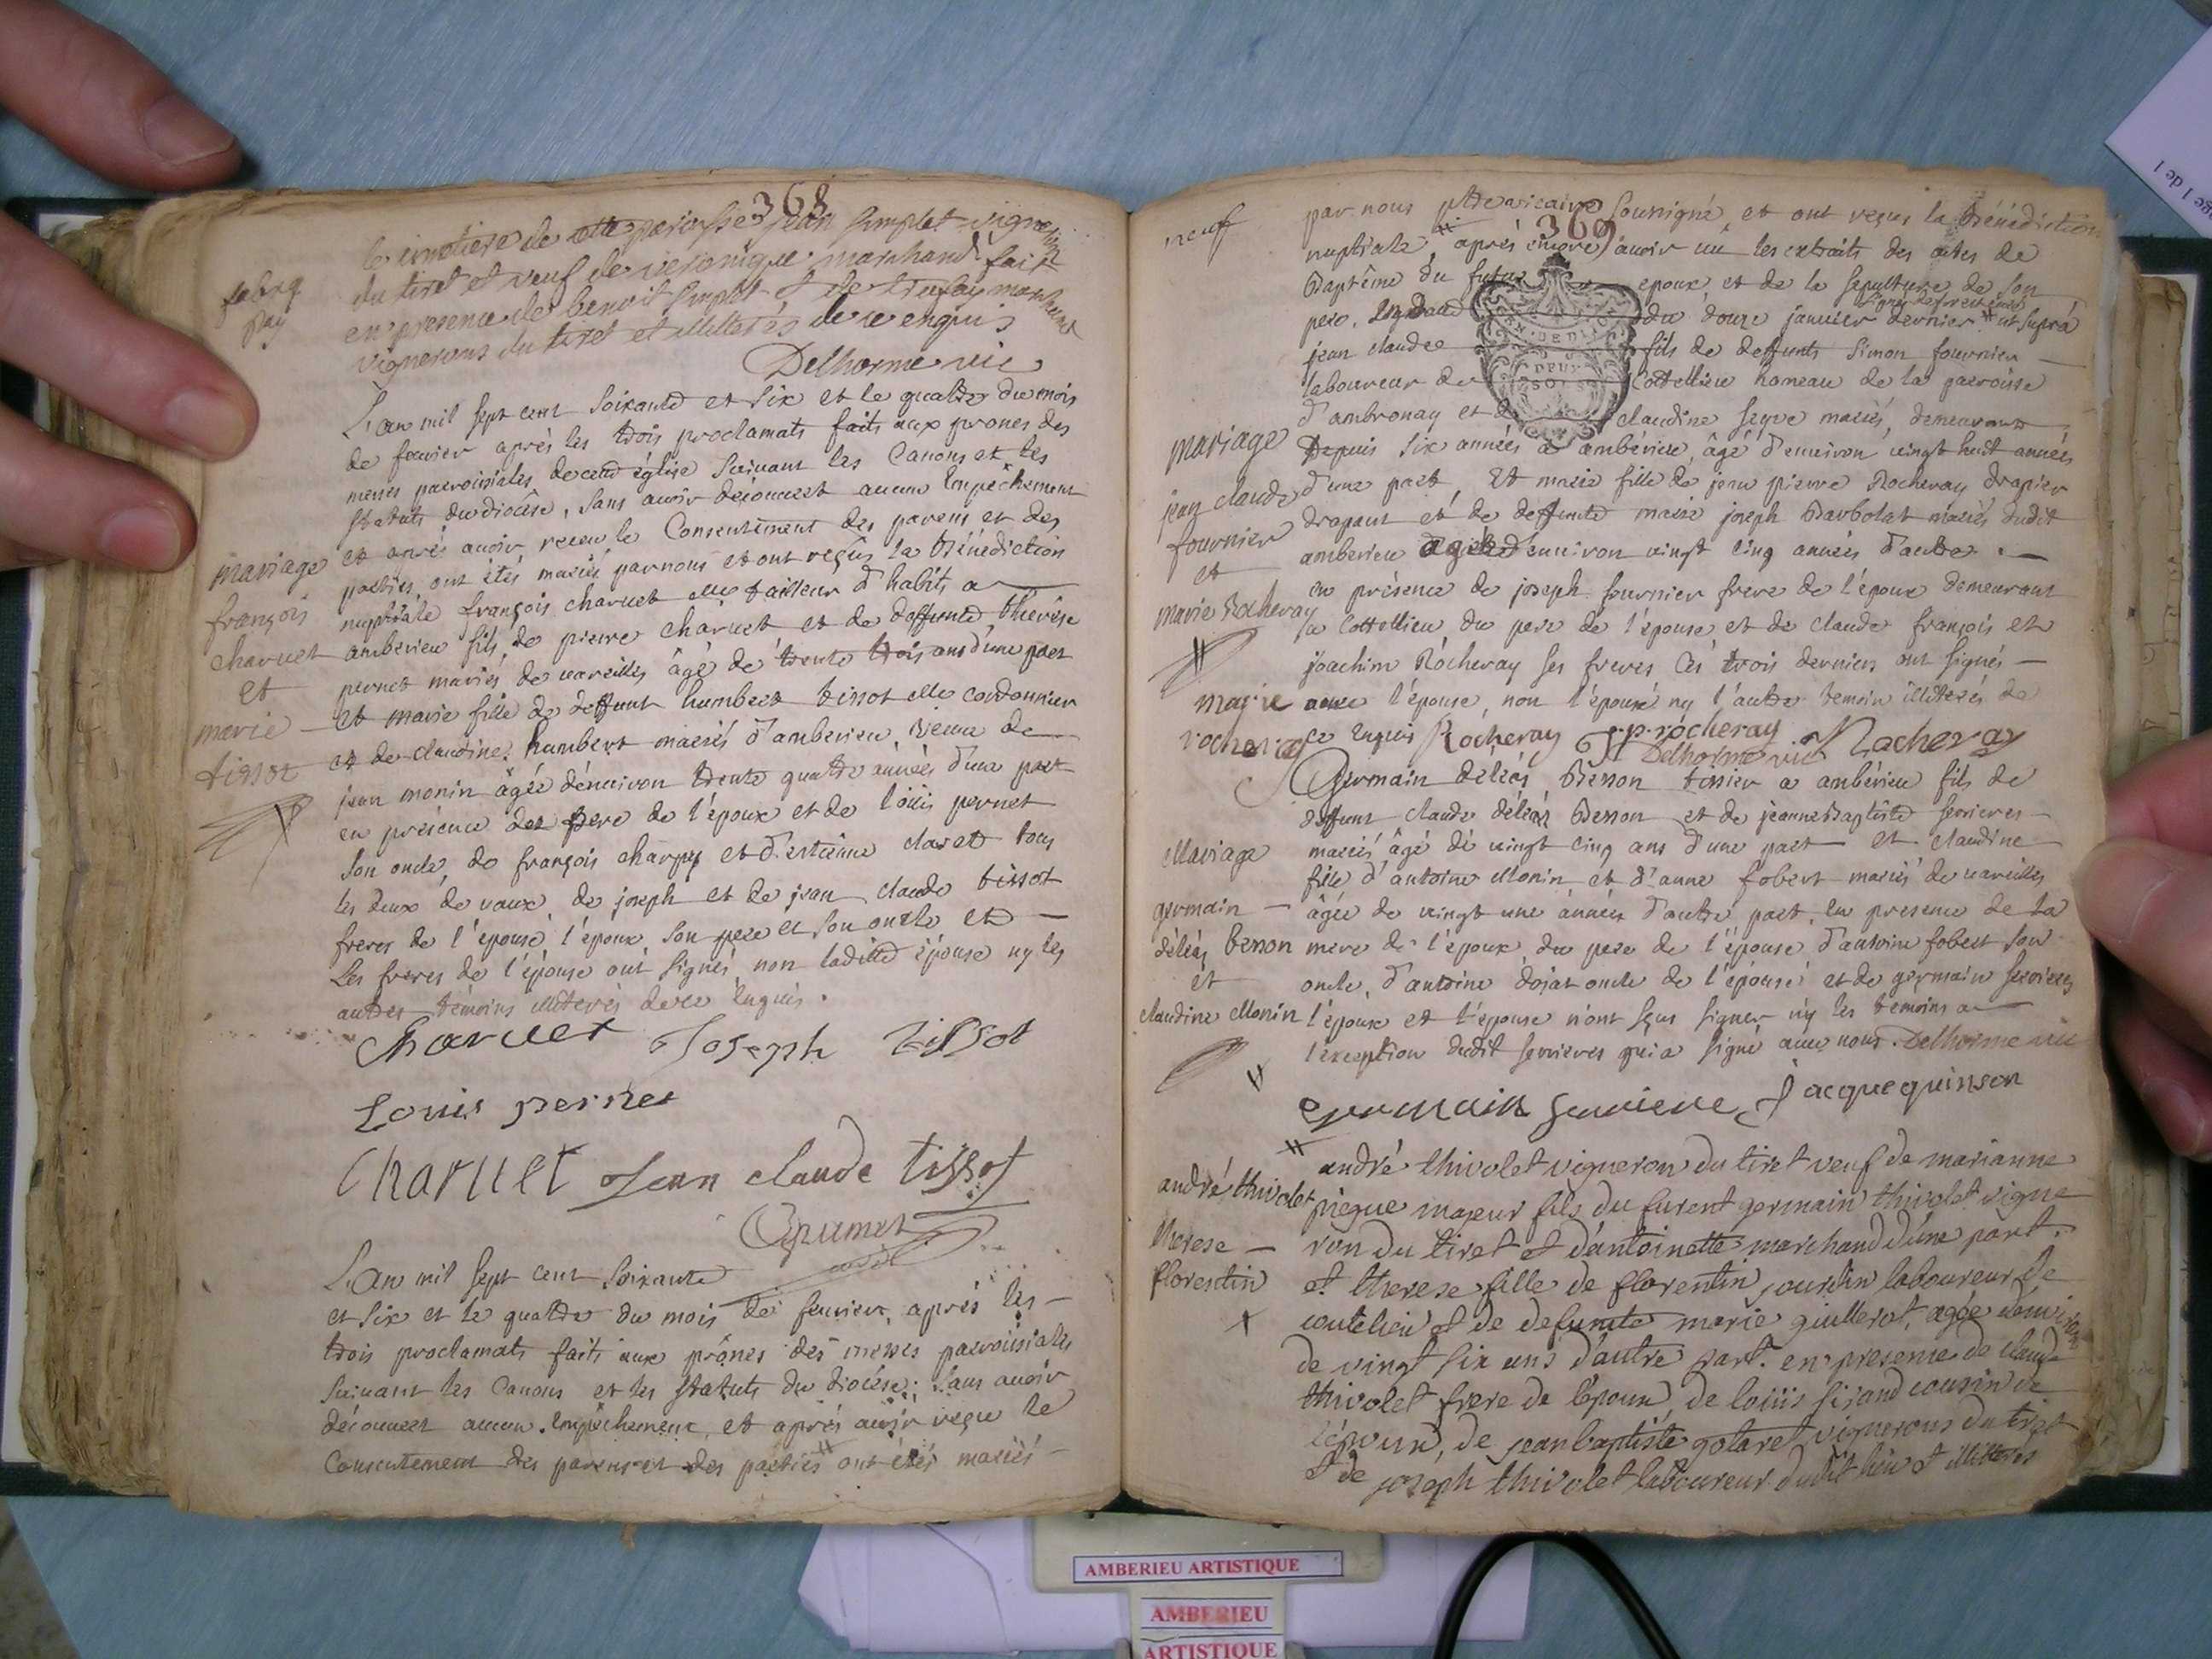 368
le cimetiere de cette paroisse jean simplet vigneron
du tiret et veuf de veronique marchand fait
en presence de benoit simplet et de marchand
vignerons du tiret et illitterés de ce enquis
Delhorme vic
L'an mil sept cent soixante et six et le quatre du mois
de fevrier après les trois proclamats faits aux prones des
messes paroissiales de cette église suivant les Canons et les
statuts du diocèse, sans avoir découvert aucun Empêchement
et après avoir receu le Consentement des parens et des
parties, ont étés mariés par nous et ont reçus la Bénédiction
nuptiale françois charvet tailleur d'habits a
amberieu fils de pierre charvet et de deffunte therèse
pernet mariés de vareilles âgé de trente trois ans d'une part
et marie fille de deffunt humbert tissot cordonnier
et de claudine humbert mariés d'amberieu, veuve de
jean monin âgée d'environ trente quatre années d'une part
en présence du pere de l'époux et de loüis pernet
son oncle, de françois charpy et d'estienne claret tous
les deux de vaux, de joseph et de jean claude tissot
freres de l'épouse, l'époux, son pere et son oncle et
Les freres de l'épouse ont signés, non laditte épouse ny les
autres témoins illiterés de ce Enquis.
mariage
françois
charvet
et
marie
tissot
charvet Joseph tissot
Louis pernet
Charvet Jean claude tissot
L'an mil sept cent soixante
et six et le quatre du mois de fevrier, après les
trois proclamats faits aux prônes des messes paroissiales
suivant les Canons et les statuts du diocèse; sans avoir
découvert aucun Empêchement, et après avoir reçu le
Consentement des parens et des parties ont étés mariés
369
neuf
par nous ptre vicaire soussigné, et ont reçus la Bénédiction
nuptiale, après encore avoir vû les extraits des actes de
Baptême du futur epoux et de la sepulture de son
pere, du douze janvier dernier ut suprà
jean claude fils de deffunts simon fournier
laboureur de Cottellieu hameau de la paroisse
d'ambronay et de claudine seyve mariés, demeurant
Depuis six années a ambérieu, âgé d'environ vingt huit années
d'une part, Et marie fille de jean pierre Rocheray drapier
drapant et de deffunte marie joseph Barbolat mariés dudit
amberieu agée d'environ vingt cinq années d'autre.
en présence de joseph fournier frere de l'époux demeurant
a Cottellieu, du pere de l'épouse, et de claude françois et
joachim Rocheray ses freres Ces trois derniers ont signés
avec l'épouse, non l'époux ny l'autre temoin illiterés de
ce Enquis Rocheray j.p. rocheray Rocheray
Delhorme vic
mariage
jean claude
fournier
et
marie Rocheray
marie
rocheray
Germain déléas Besson tissier a ambérieu fils de
deffunt claude déléas Besson et de jeanne Baptiste servieres
mariés âgé de vingt cinq ans d'une part et claudine
fille d'antoine Monin et d'anne fobert mariés de vareilles
âgée de vingt une années d'autre part, en presence de la
mere de l'époux, du pere de l'épouse, d'antoine fobert son
oncle, d'antoine dojat oncle de l'épouse et de germain servieres
l'époux et l'épouse n'ont sçus signer ny les témoins a
l'exception dudit servieres qui a signé avec nous. Delhorme vic
Mariage
germain
déléas besson
et
claudine Monin
germain serviere Jacquequinson
andré thivolet vigneron du tiret veuf de marianne
piegue majeur fils du furent germain thivolet vigne
ron du tiret et d'antoinette marchand d'une part.
et therese fille de florentin jourdin laboureur de
coutelieu et de defunte marie guillerot, agée d'environ
de vingt six ans d'autre part. en presence de claude
thivolet frere de l'epoux, de loüis sirand cousin de
l'époux, de jean baptiste gotaret vignerons du tiret
et de joseph thivolet laboureur dudit lieu et illitterés
andré thivolet
therese
florentin
AMBERIEU ARTISTIQUE
AMBERIEU
ARTISTIQUE